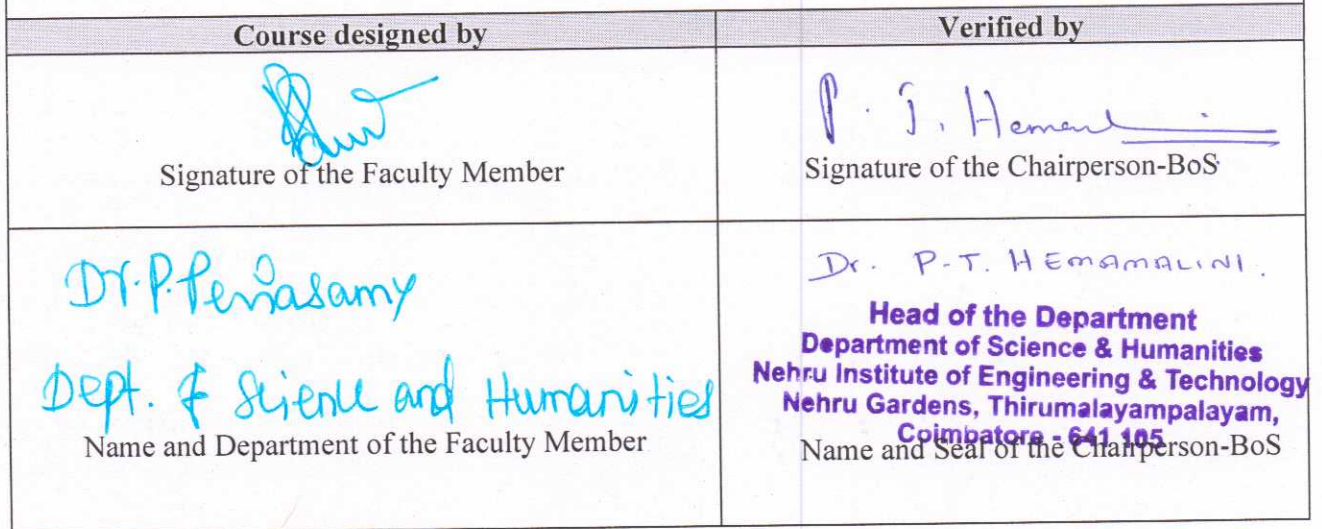 Course designed by
Verified by
Signature of the Faculty Member
P. T. Hemamalini
Signature of the Chairperson-BoS
Dr. P. Periasamy
Dept. of Science and Humanities
Name and Department of the Faculty Member
Dr. P.T. HEMAMALINI.
Head of the Department
Department of Science & Humanities
Nehru Institute of Engineering & Technology
Nehru Gardens, Thirumalayampalayam,
Coimbatore - 641 105
Name and Seal of the Chairperson-BoS